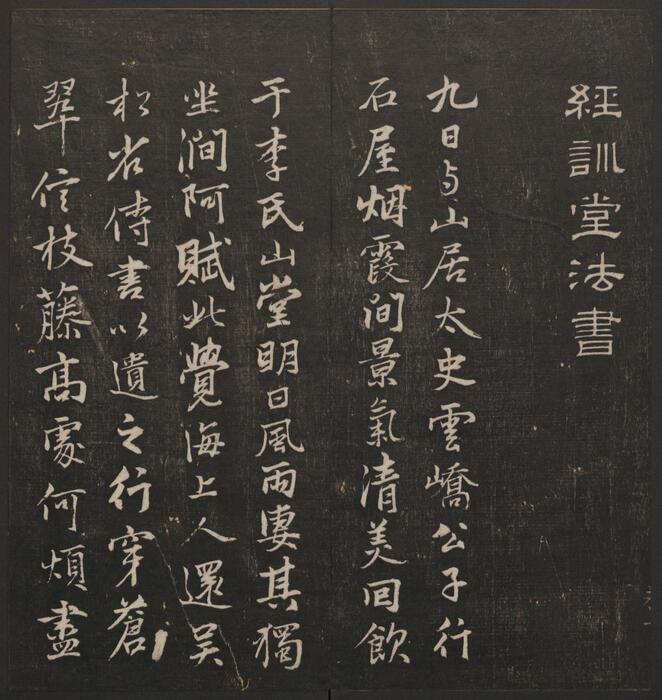 經訓堂法書
九日与山居太史雲嶠公子行
石屋烟霞间景氣清美回飲
于李氏山堂明日風雨凄其獨
坐澗阿賦此覺海上人還吴
松省侍書以遺之行穿蒼
翠信枝藤高處何煩盡